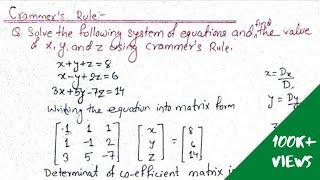 Crammer's Rule:-
Q. Solve the following system of equations and find the value
of x, y, and z using Crammer's Rule.
x+y+z=8
x-y+2z=6
3x+5y-7z=14
Writing the equation into matrix form
x = Dx/D
y = Dy/
[1 1 1] [x] [8]
[1 -1 2] [y] = [6]
[3 5 -7] [z] [14]
Determinat of co-efficient matrix i
100K+
VIEWS